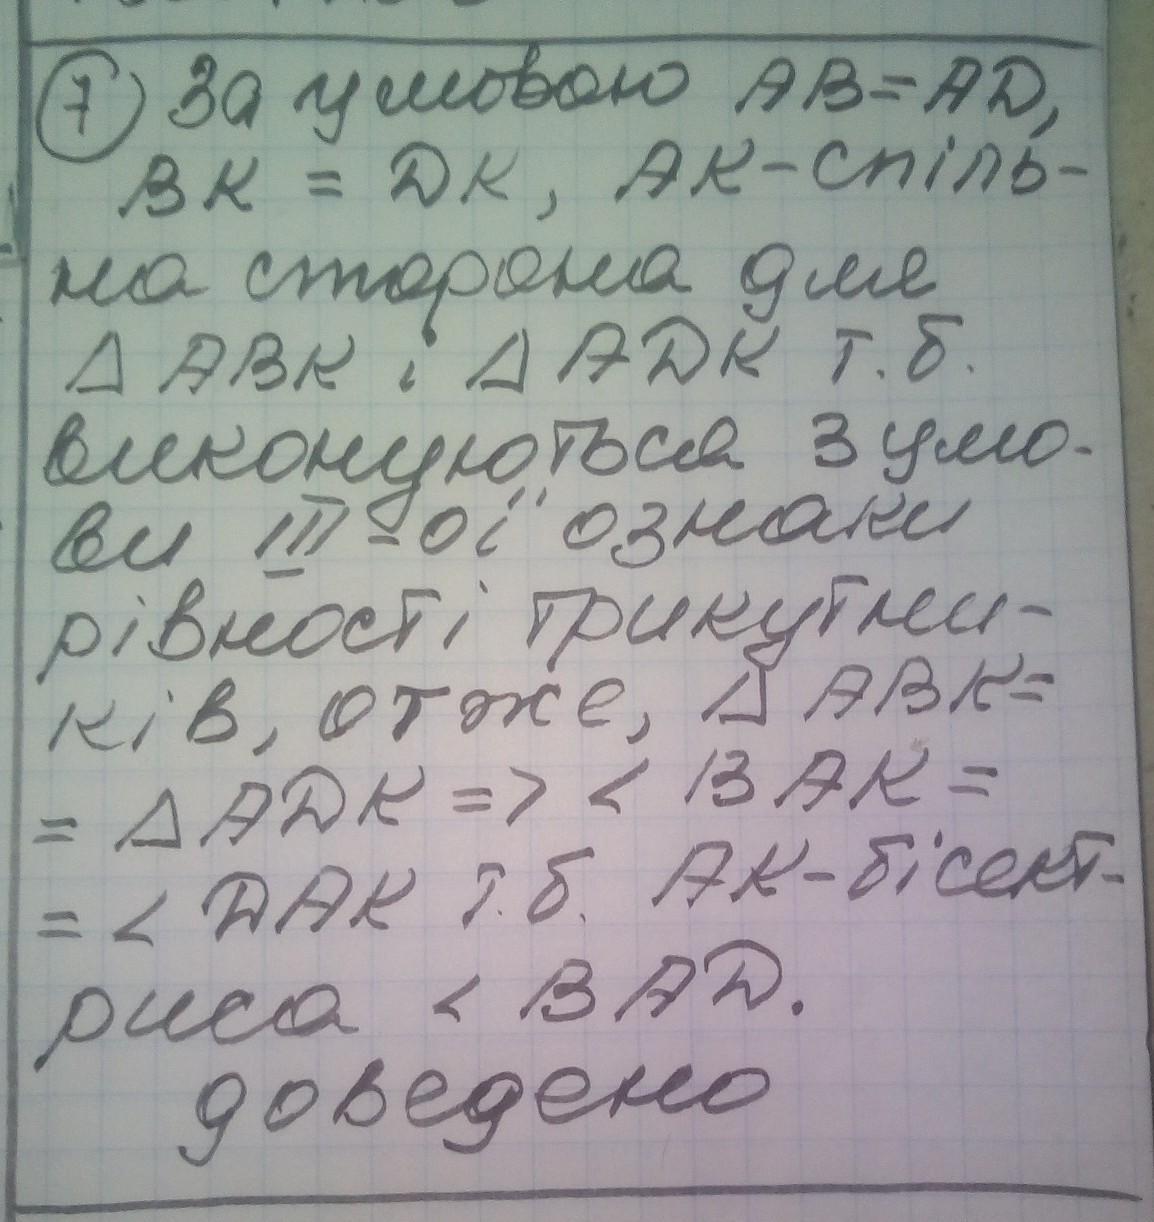 7 За умовою AB=AD,
BK = DK, AK-спіль-
на сторона для
△ABK і △ADK т.б.
виконуються 3 умо-
ви III-ої ознаки
рівності трикутни-
ків, отже, △ABK=
= △ADK => < BAK =
= < DAK т.б. AK-бісект-
риса < BAD.
доведено